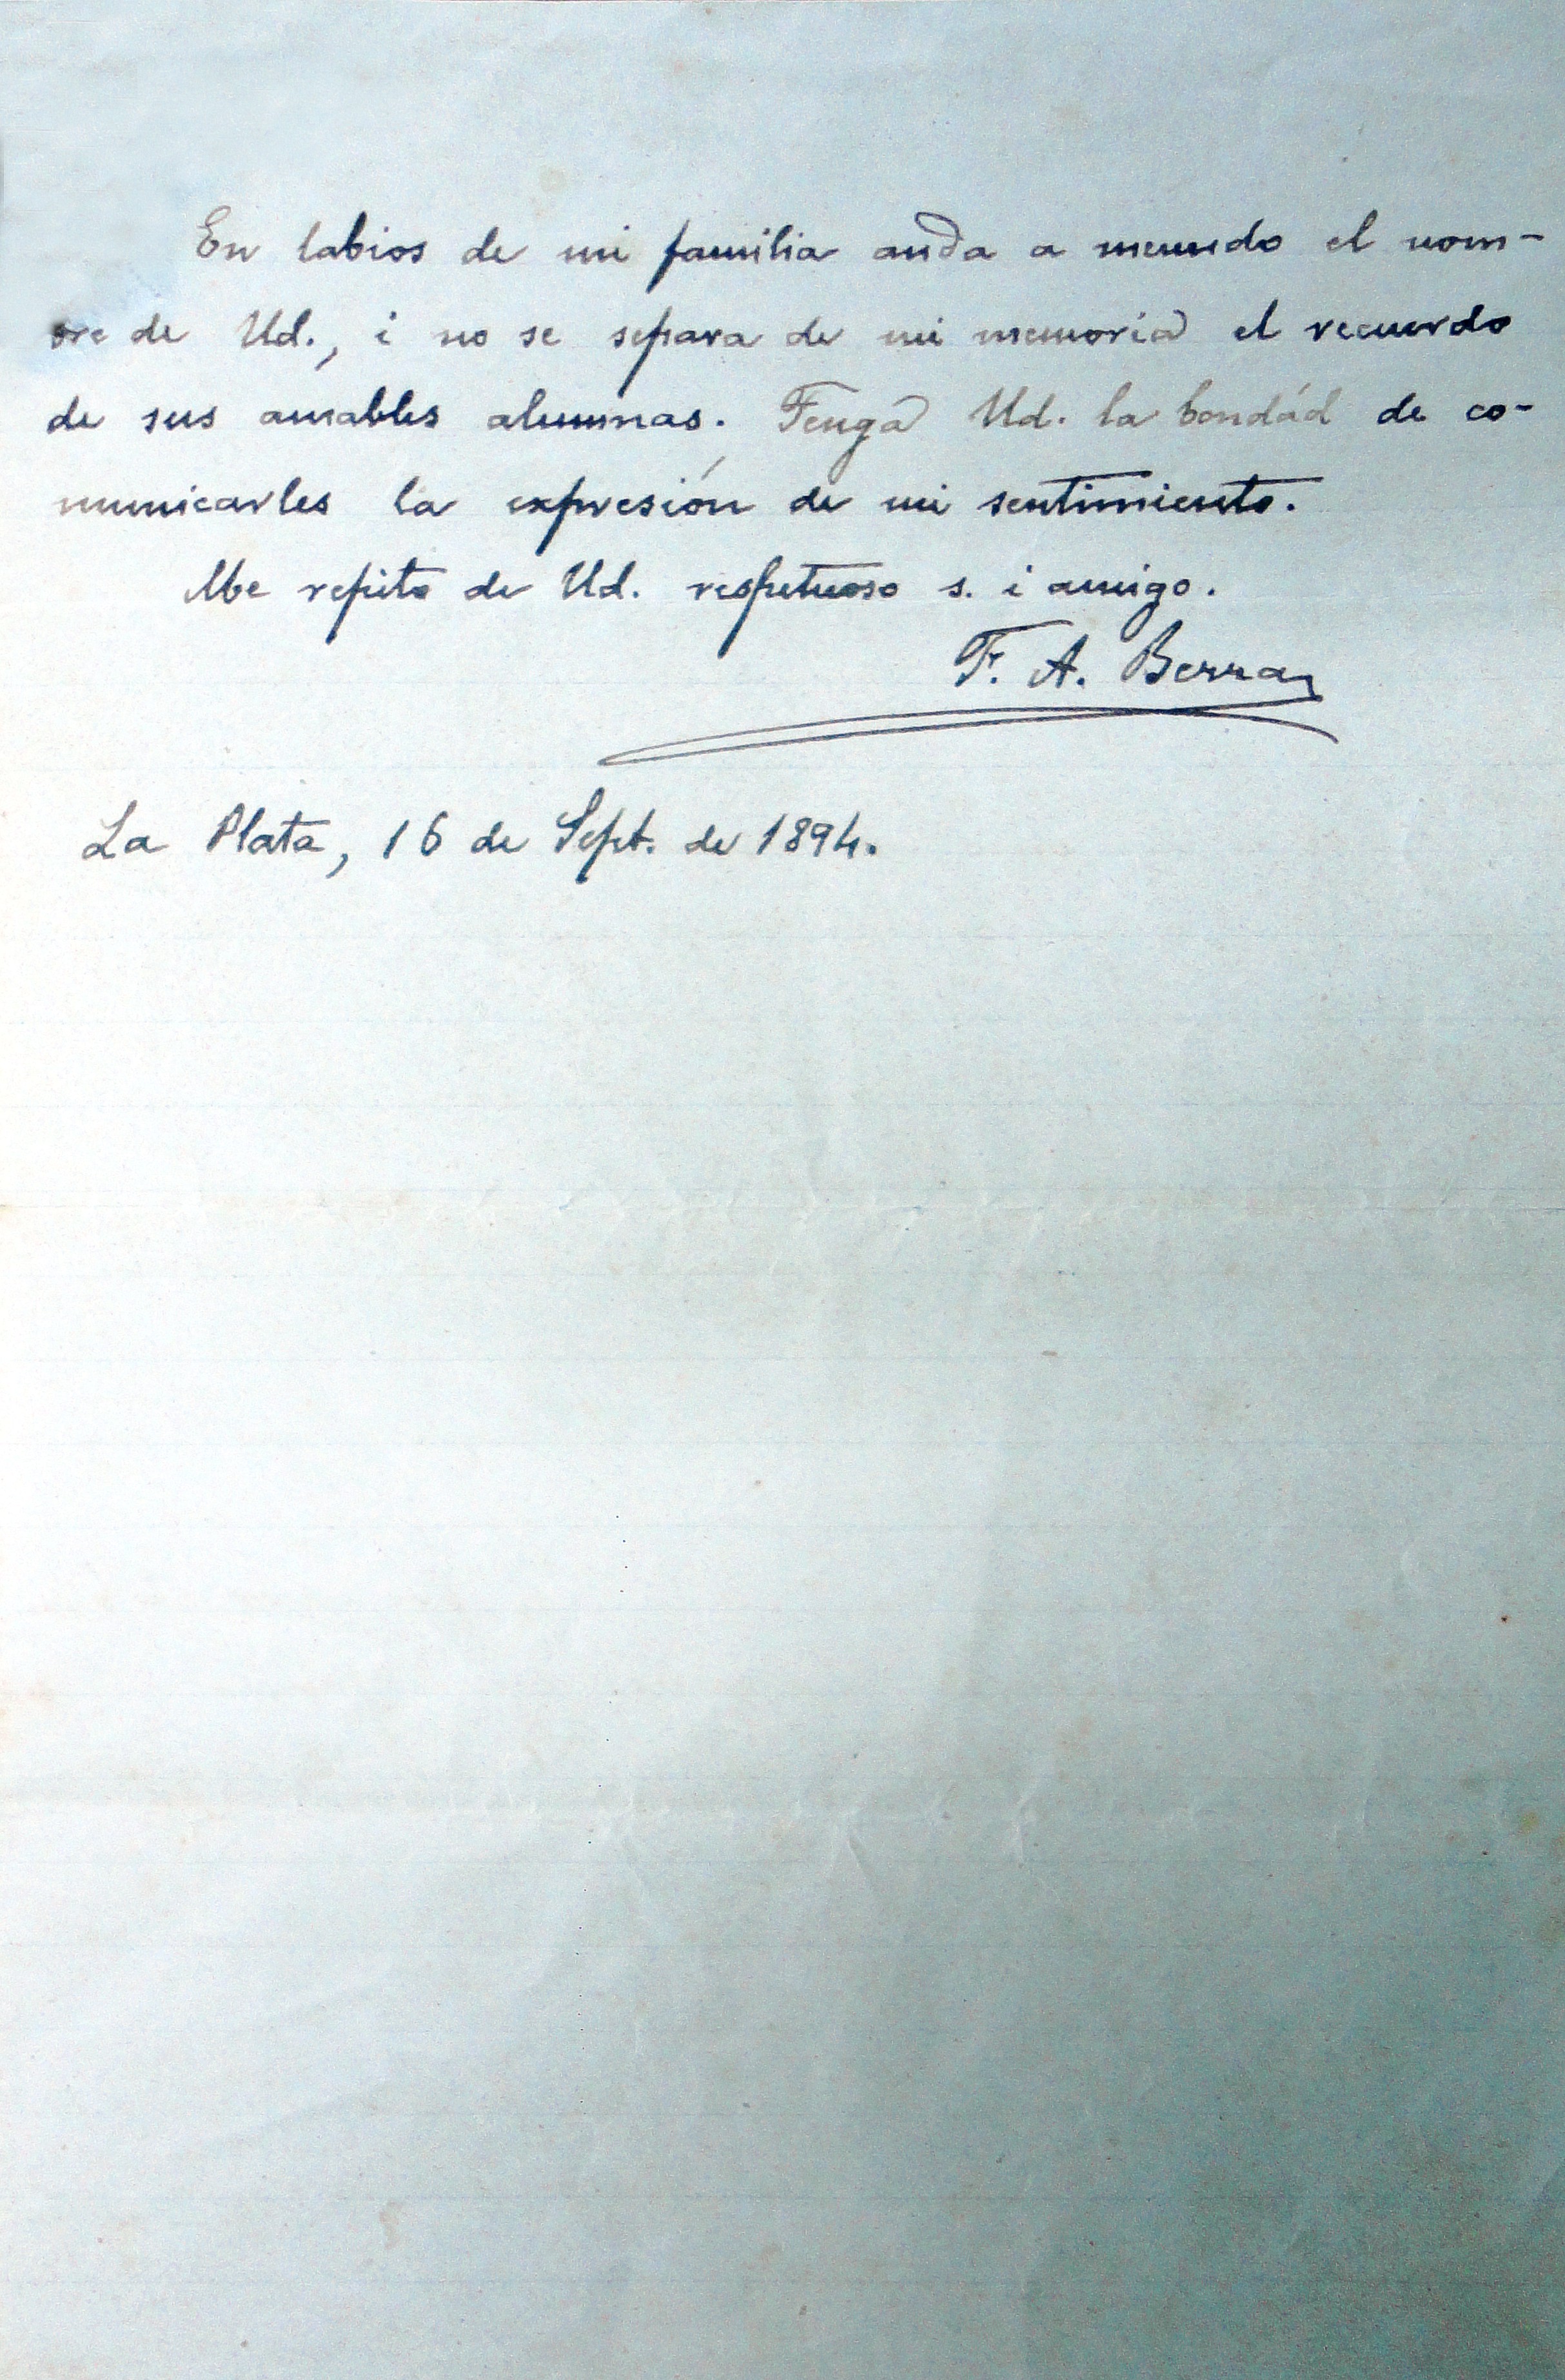 En labios de mi familia anda a menudo el nom-
bre de Ud., i no se separa de mi memoria el recuerdo
de sus amables alumnas. Tenga Ud. la bondád de co-
municarles la expresión de mi sentimiento.
Me repito de Ud. respetuoso s. i amigo.
F. A. Berra
La Plata, 16 de Sept. de 1894.